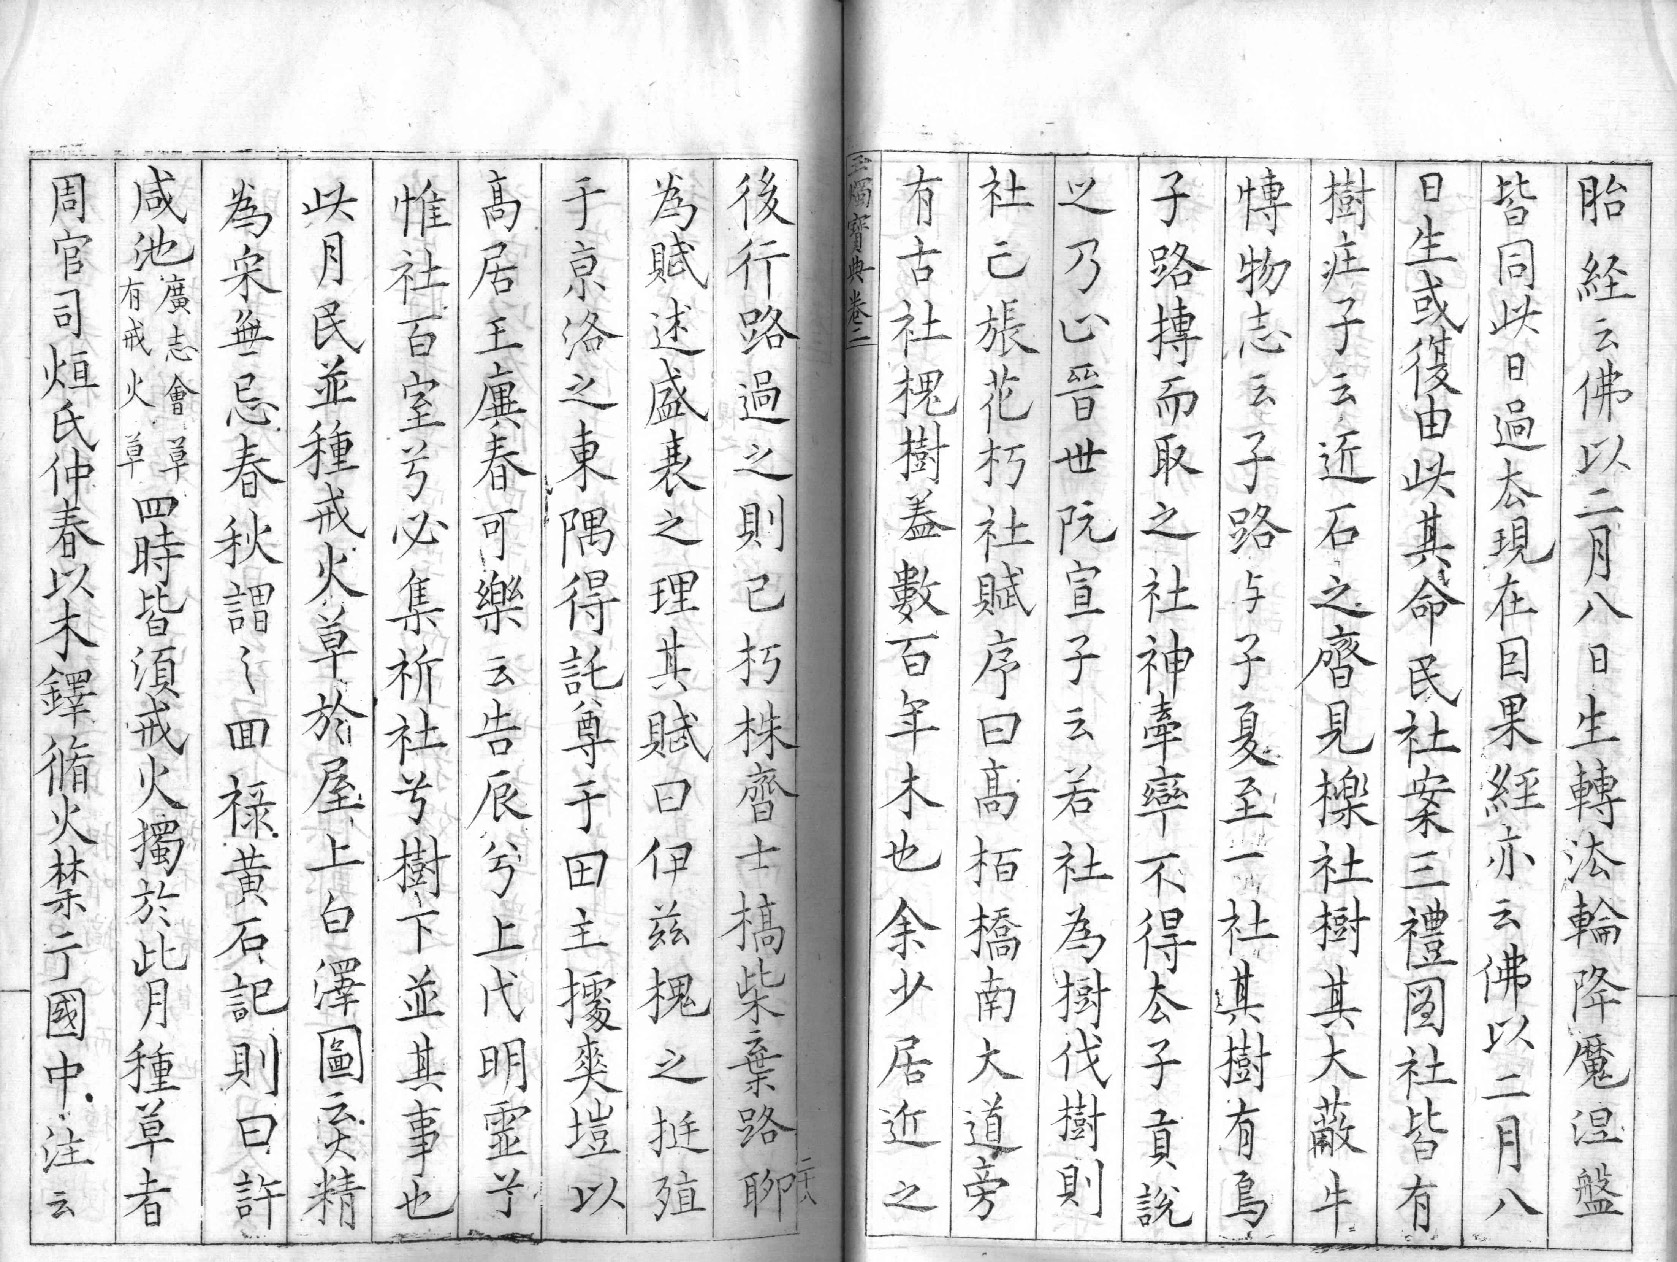 胎経云佛以二月八日生轉法輪降魔涅盤
皆同此日過去現在因果経亦云佛以二月八
日生或復由此其命民社案三禮图社皆有
樹庄子云近石之齊見櫟社樹其大蔽牛
博物志云子路与子夏至一社其樹有鳥
子路摶而取之社神牽攣不得去子貢說
之乃止晉世阮宣子云若社為樹伐樹則
社已張花朽社賦序曰髙栢橋南大道旁
有古社槐樹盖數百年木也余少居近之
玉燭寶典卷二
後行路過之則已朽株齊士槁柴棄路聊
為賦述盛衰之理其賦曰伊兹槐之挺殖
于京洛之東隅得託尊于田主擾爽塏以
髙居王廙春可樂云告辰兮上代明靈兮
惟社百室兮必集祈社兮樹下並其事也
此月民並種戒火草於屋上白澤圖云火精
為宋無忌春秋謂之囬禄黄石記則曰許
咸池廣志會草有戒火草四時皆須戒火獨於此月種草者
周官司烜氏仲春以木鐸脩火禁于國中注云
二十八